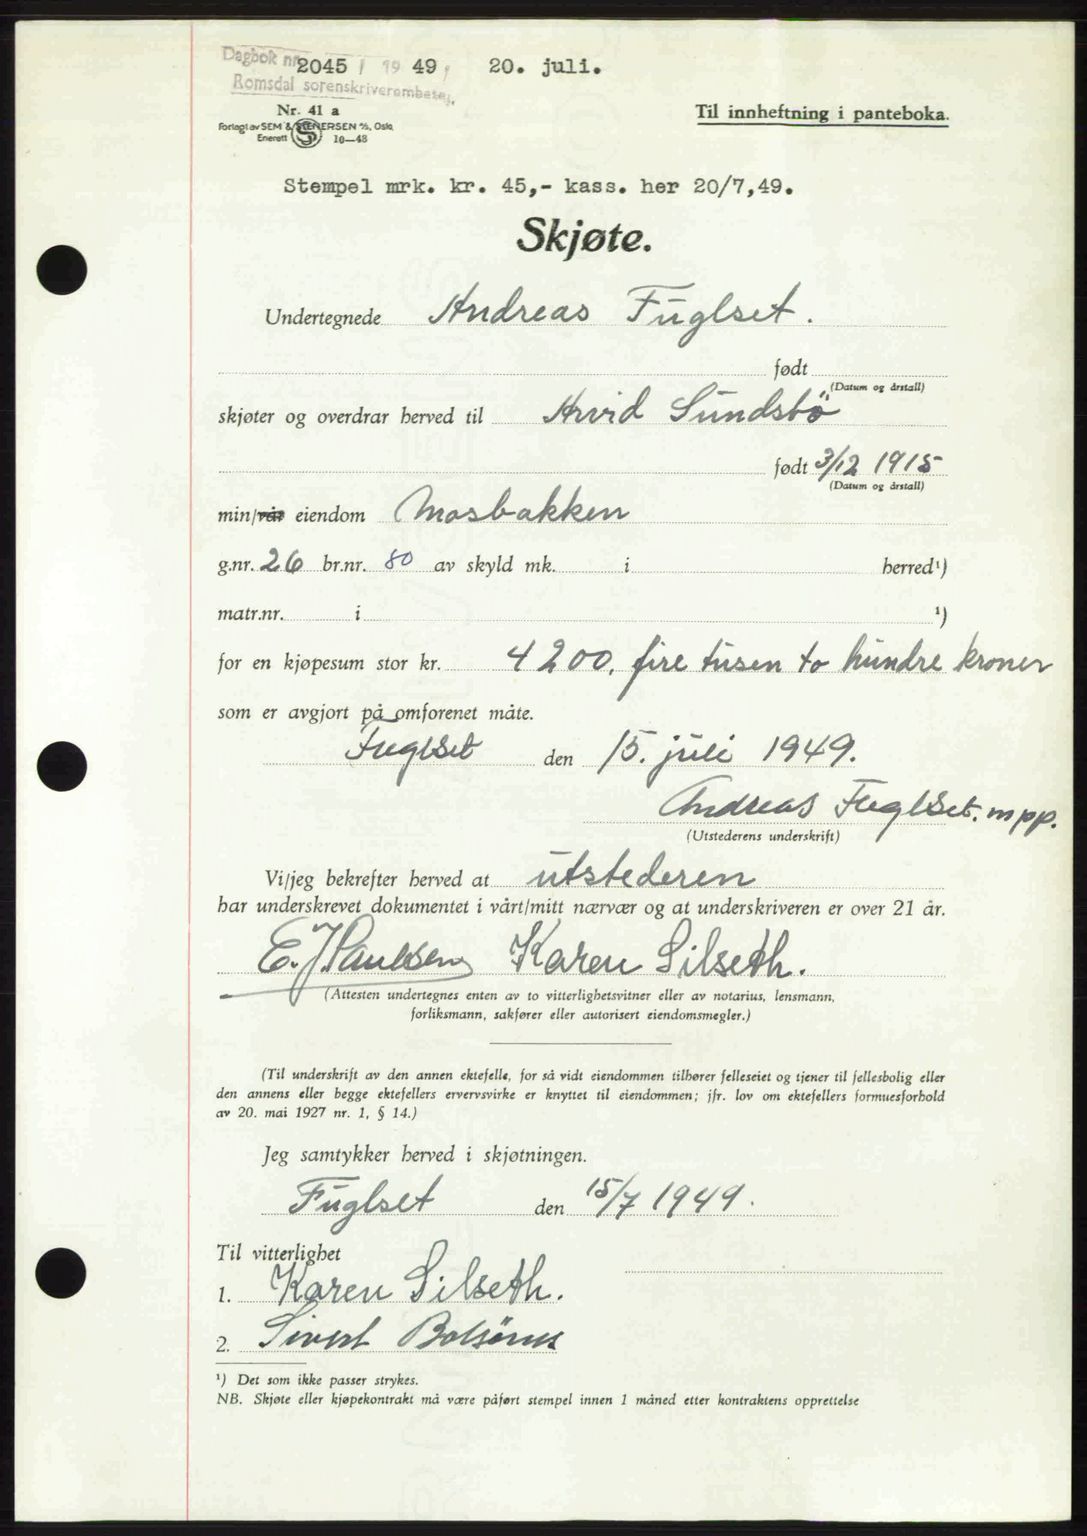 Dagbok nr. 2045 / 1949, 20. juli.
Romsdal sorenskriverembetej.
Nr. 41 a
Til innheftning i panteboka.
Forlagt av SEM & STENERSEN A/S, Oslo.
Enerett 10—48
Stempel mrk. kr. 45,- kass. her 20/7,49.
Skjøte.
Undertegnede Andreas Fuglset.
født
(Datum og årstall)
skjøter og overdrar herved til Arvid Sundsbö
født 3/12 1915
(Datum og årstall)
min/vår eiendom Mosbakken
g.nr. 26 br.nr. 80 av skyld mk. i herred¹)
matr.nr. i ¹)
for en kjøpesum stor kr. 4200, fire tusen to hundre kroner
som er avgjort på omforenet måte.
Fuglset den 15. juli 1949.
Andreas Fuglset. mpp.
(Utstederens underskrift)
Vi/jeg bekrefter herved at utstederen
har underskrevet dokumentet i vårt/mitt nærvær og at underskriveren er over 21 år.
E. J. Paulsen Karen Silseth.
(Attesten undertegnes enten av to vitterlighetsvitner eller av notarius, lensmann,
forliksmann, sakfører eller autorisert eiendomsmegler.)
(Til underskrift av den annen ektefelle, for så vidt eiendommen tilhører felleseiet og tjener til fellesbolig eller
den annens eller begge ektefellers ervervsvirke er knyttet til eiendommen; jfr. lov om ektefellers formuesforhold
av 20. mai 1927 nr. 1, § 14.)
Jeg samtykker herved i skjøtningen.
Fuglset den 15/7 1949.
Til vitterlighet
1. Karen Silseth.
2. Sivert Bolsönes
¹) Det som ikke passer strykes.
NB. Skjøte eller kjøpekontrakt må være påført stempel innen 1 måned etter kontraktens opprettelse